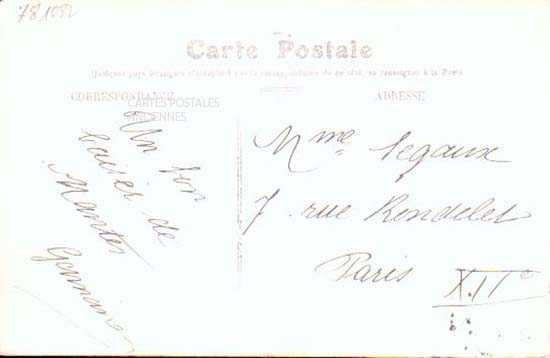 78,1052
Carte Postale
Quelques pays étrangers n'acceptent pas la correspondance de ce côté, se renseigner à la Poste
CORRESPONDANCE
ADRESSE
CARTES POSTALES
ANCIENNES
Un bon
baiser de
Nantes
Germaine
Mme Segaux
7 rue Rondelet
Paris XIIe